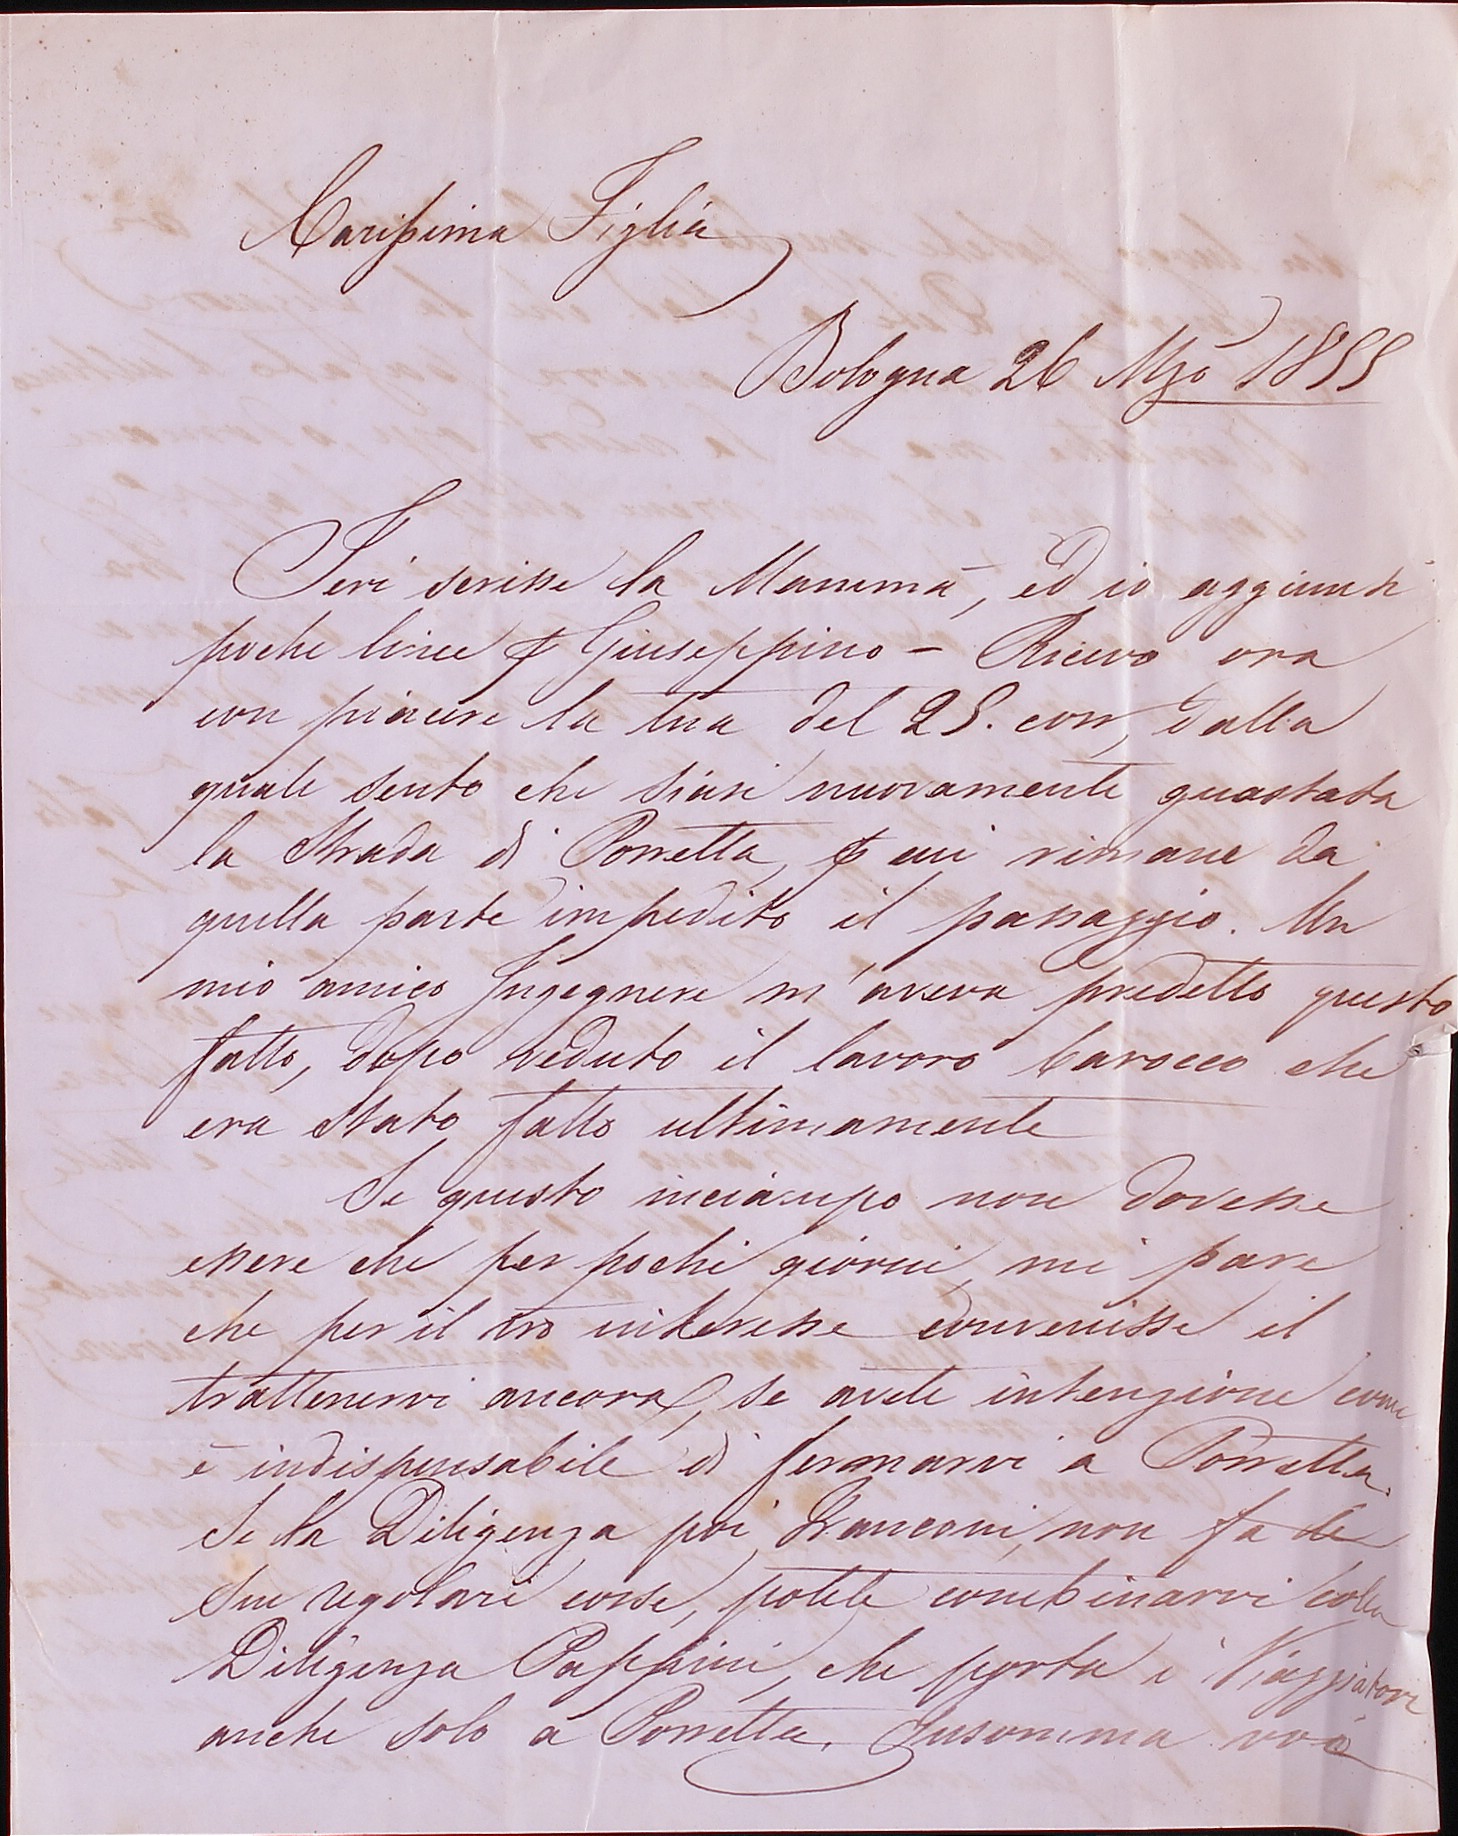 Carissima Figlia
Bologna 26 Mzo 1855
Ieri scrisse la Mammà, ed io aggiunsi
poche linee p Giuseppino – Ricevo ora
con piacere la tua del 25. corr, dalla
quale sento che siasi nuovamente guastata
la Strada di Porretta, p cui rimane da
quella parte impedito il passaggio. Un
mio amico Ingegnere m'aveva predetto questo
fatto, dopo veduto il lavoro barocco che
era stato fatto ultimamente
Se questo inciampo non dovesse
essere che per pochi giorni, mi pare
che per il vro interesse convenisse il
trattenervi ancora, se avete intenzione come
è indispensabile di fermarvi a Porretta.
Se la Diligenza poi Franconi, non fa le
sue regolari corse, potete combinarvi colla
Diligenza Pappini, che porta i Viaggiatori
anche solo a Porretta. Insomma voi